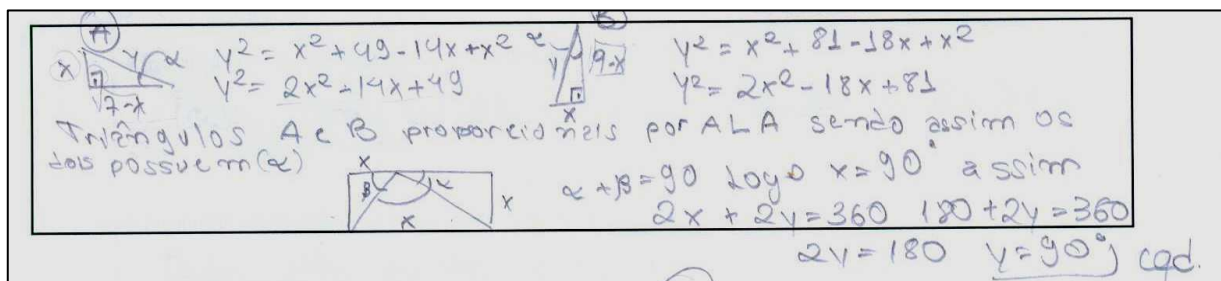 A
x y α
7-x
y² = x² + 49 - 14x + x²
y² = 2x² - 14x + 49
B
α
y 9-x
x
y² = x² + 81 - 18x + x²
y² = 2x² - 18x + 81
Triângulos A e B proporcionais por ALA sendo assim os
dois possuem (α)
x
β α x
x
α + β = 90 Logo x = 90° assim
2x + 2y = 360 180 + 2y = 360
2y = 180 y = 90° cqd.